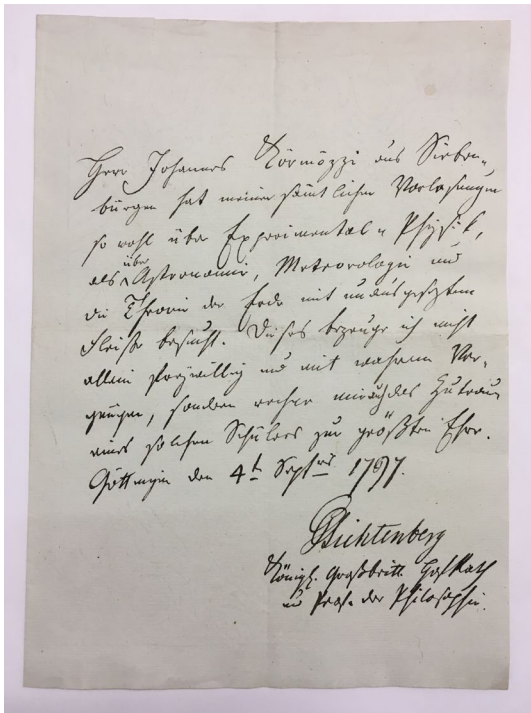 Herr Johannes Körmöczi aus Sieben„
bürgen hat meine sämtlichen Vorlesungen
so wohl über Experimental„Physik,
als über Astronomie, Meteorologie und
die Theorie der Erde mit unausgeseztem
Fleisse besucht. Dieses bezeuge ich nicht
allein freywillig und mit wahrem Ver„
gnügen, sondern rechne mir auch das Zutrauen
eines solchen Schülers zur größten Ehre.
Göttingen den 4t Septbr 1797.
GCLichtenberg
Königl. Großbritt. HofRath
und Prof. der Philosophie.